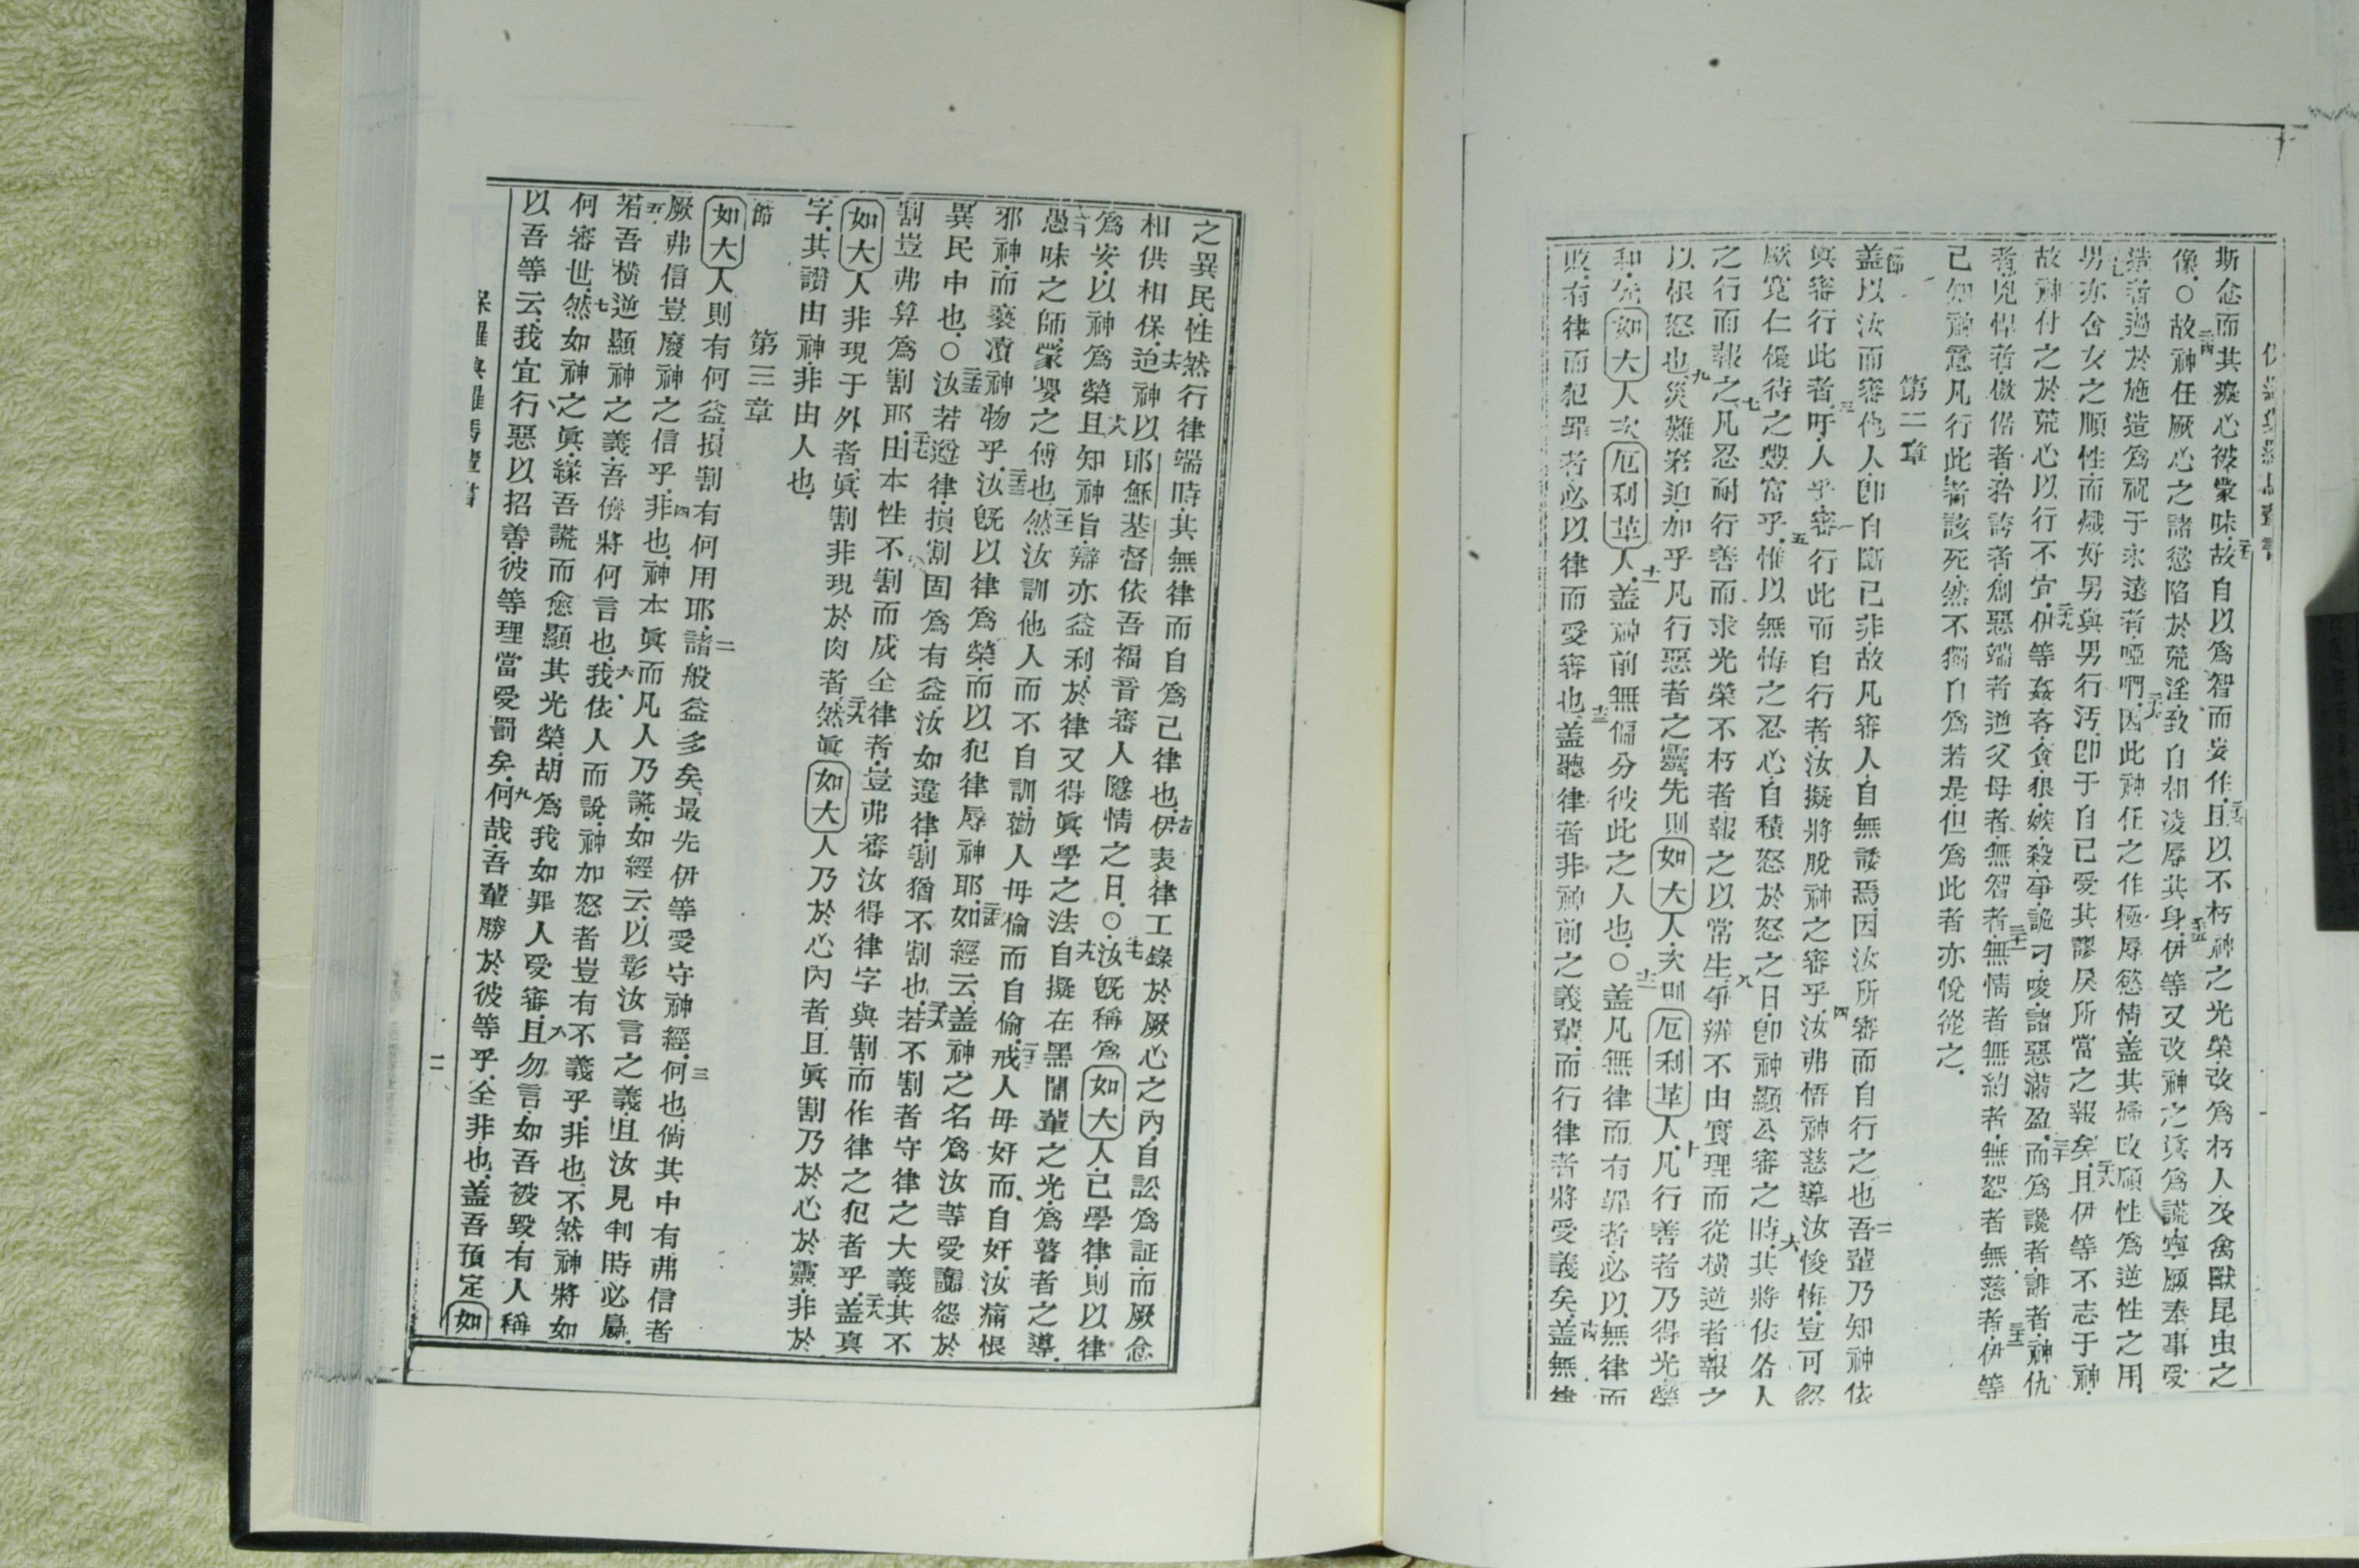 保羅與羅馬輩書
斯念而其癡心被蒙昧.故自以爲智而妄作.且以不朽神之光榮改爲朽人及禽獸昆虫之
像.○故神任厥心之諸慾陷於荒淫.致自相凌辱其身.伊等又改神之眞爲謊.寧願奉事受
造者過於施造爲祝于永遠者.啞啊.因此神任之作極辱慾情.蓋其婦改順性爲逆性之用.
男亦舍女之順性而熾好男與男行汚.卽于自己受其謬戾所當之報矣.且伊等不志于神.
故神付之於荒心以行不宜.伊等姦吝.貪狠.嫉殺.爭詭.刁唆諸惡滿盈.而爲讒者.誹者.神仇
者.兇悍者.傲倨者.矜誇者.創惡端者.逆父母者.無智者.無情者無約者.無恕者無慈者.伊等
已知神意凡行此者該死.然不獨自爲若是.但爲此者亦悅從之.
第二章
節
蓋以汝而審他人卽自斷己非.故凡審人自無諉焉.因汝所審而自行之也.吾輩乃知神依
眞審行此者.吁.人乎.審行此而自行者.汝擬將脫神之審乎.汝弗悟神慈導汝悛悔.豈可忽
厥寬仁優待之豐富乎.惟以無悔之忍心.自積怒於怒之日.卽神顯公審之時.其將依各人
之行而報之.凡忍耐行善而求光榮不朽者.報之以常生.爭辨不由實理而從橫逆者.報之
以恨怒也.災難窘迫加乎凡行惡者之靈.先則如大人.次則厄利革人.凡行善者乃得光榮
和.先如大人次厄利革人.蓋神前無偏分彼此之人也.○蓋凡無律而有罪者.必以無律而
敗.有律而犯罪者.必以律而受審也.蓋聽律者非神前之義輩.而行律者將受義矣.蓋無律
之異民.性然行律端時.其無律而自爲己律也.伊表律工錄於厥心之內.自訟爲証.而厥念
相供相保.迨神以耶穌基督依吾福音審人隱情之日.○汝旣稱爲如大人.已學律.則以律
爲安.以神爲榮.且知神旨.辯亦益利.於律又得眞學之法.自擬在黑闇輩之光.爲瞽者之導.
愚昧之師.蒙嬰之傅也.然汝訓他人而不自訓.勸人毋偷而自偷.戒人毋奸而自奸.汝痛恨
邪神.而褻瀆神物乎.汝旣以律爲榮.而以犯律辱神耶.如經云.蓋神之名爲汝等受讟怨於
異民中也.○汝若遵律.損割固爲有益.汝如違律.割猶不割也.若不割者守律之大義.其不
割豈弗算爲割耶.由本性不割而成全律者.豈弗審汝得律字與割而作律之犯者乎.蓋真
如大人非現于外者.眞割非現於肉者.然眞如大人乃於心內者.且眞割乃於心於靈.非於
字.其讚由神.非由人也.
第三章
節
如大人則有何益.損割有何用耶.諸般益多矣.最先伊等受守神經.何也.倘其中有弗信者
厥弗信豈廢神之信乎.非也.神本眞而凡人乃謊.如經云.以彰汝言之義.且汝見判時必贏.
若吾橫逆顯神之義.吾儕將何言也.我依人而說.神加怒者豈有不義乎.非也.不然神將如
何審世.然如神之眞.緣吾謊而愈顯其光榮.胡爲我如罪人受審.且勿言.如吾被毀.有人稱
以吾等云.我宜行惡以招善.彼等理當受罰矣.何哉.吾輩勝於彼等乎.全非也.蓋吾預定如
保羅與羅馬輩書
二